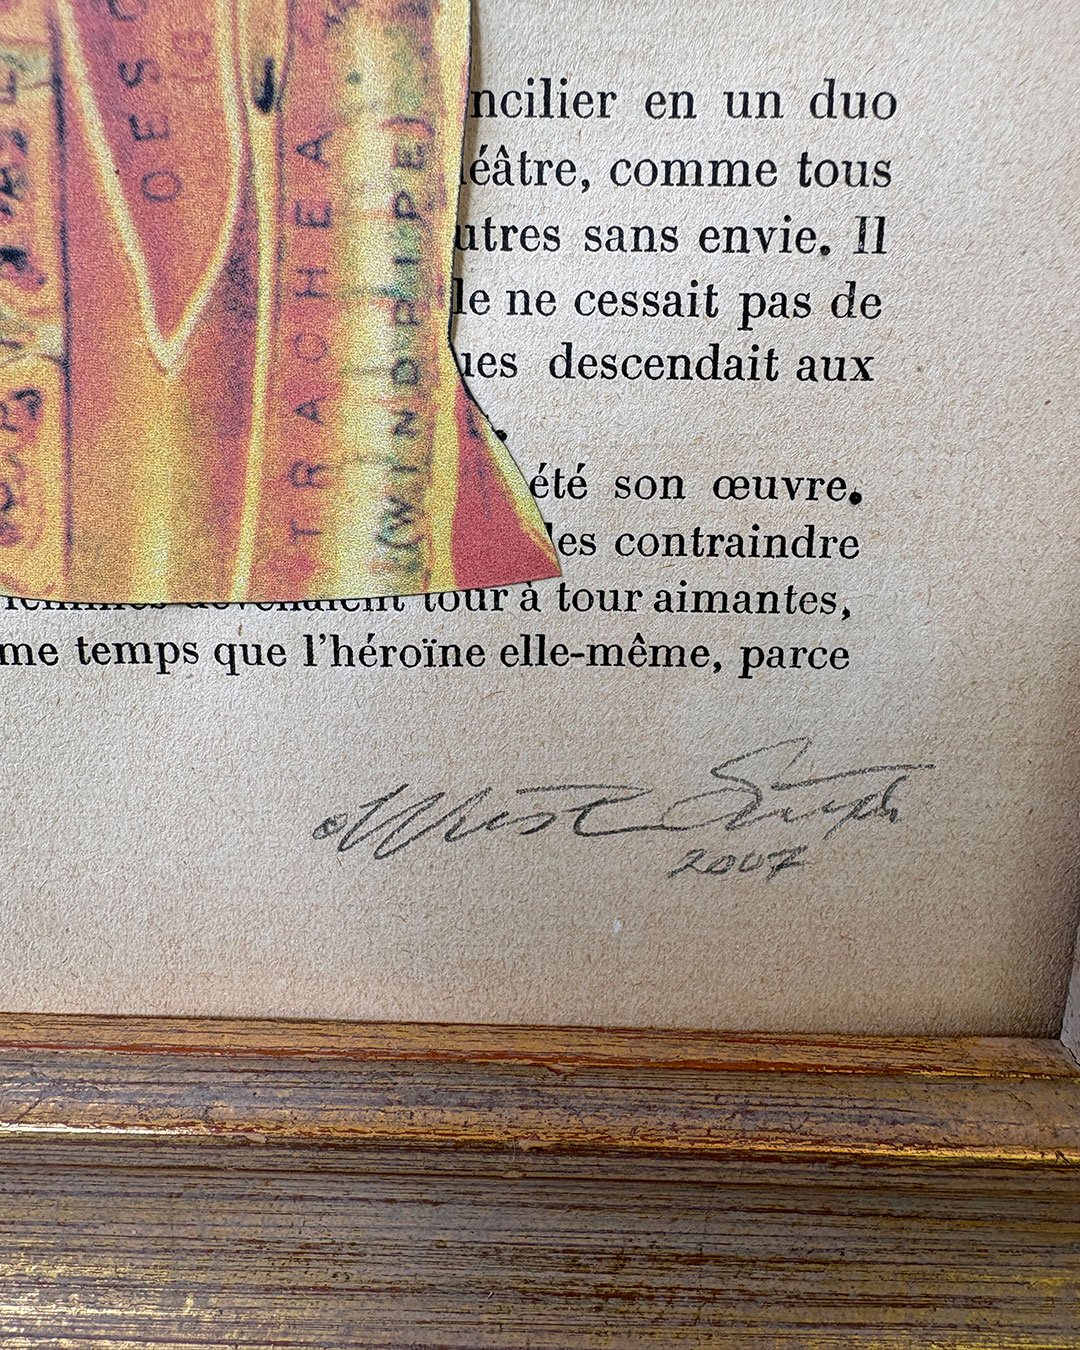 OESO
TRACHEA
(WINDPIPE)
ncilier en un duo
éâtre, comme tous
utres sans envie. Il
le ne cessait pas de
ues descendait aux
été son œuvre.
les contraindre
tour à tour aimantes,
me temps que l'héroïne elle-même, parce
2007